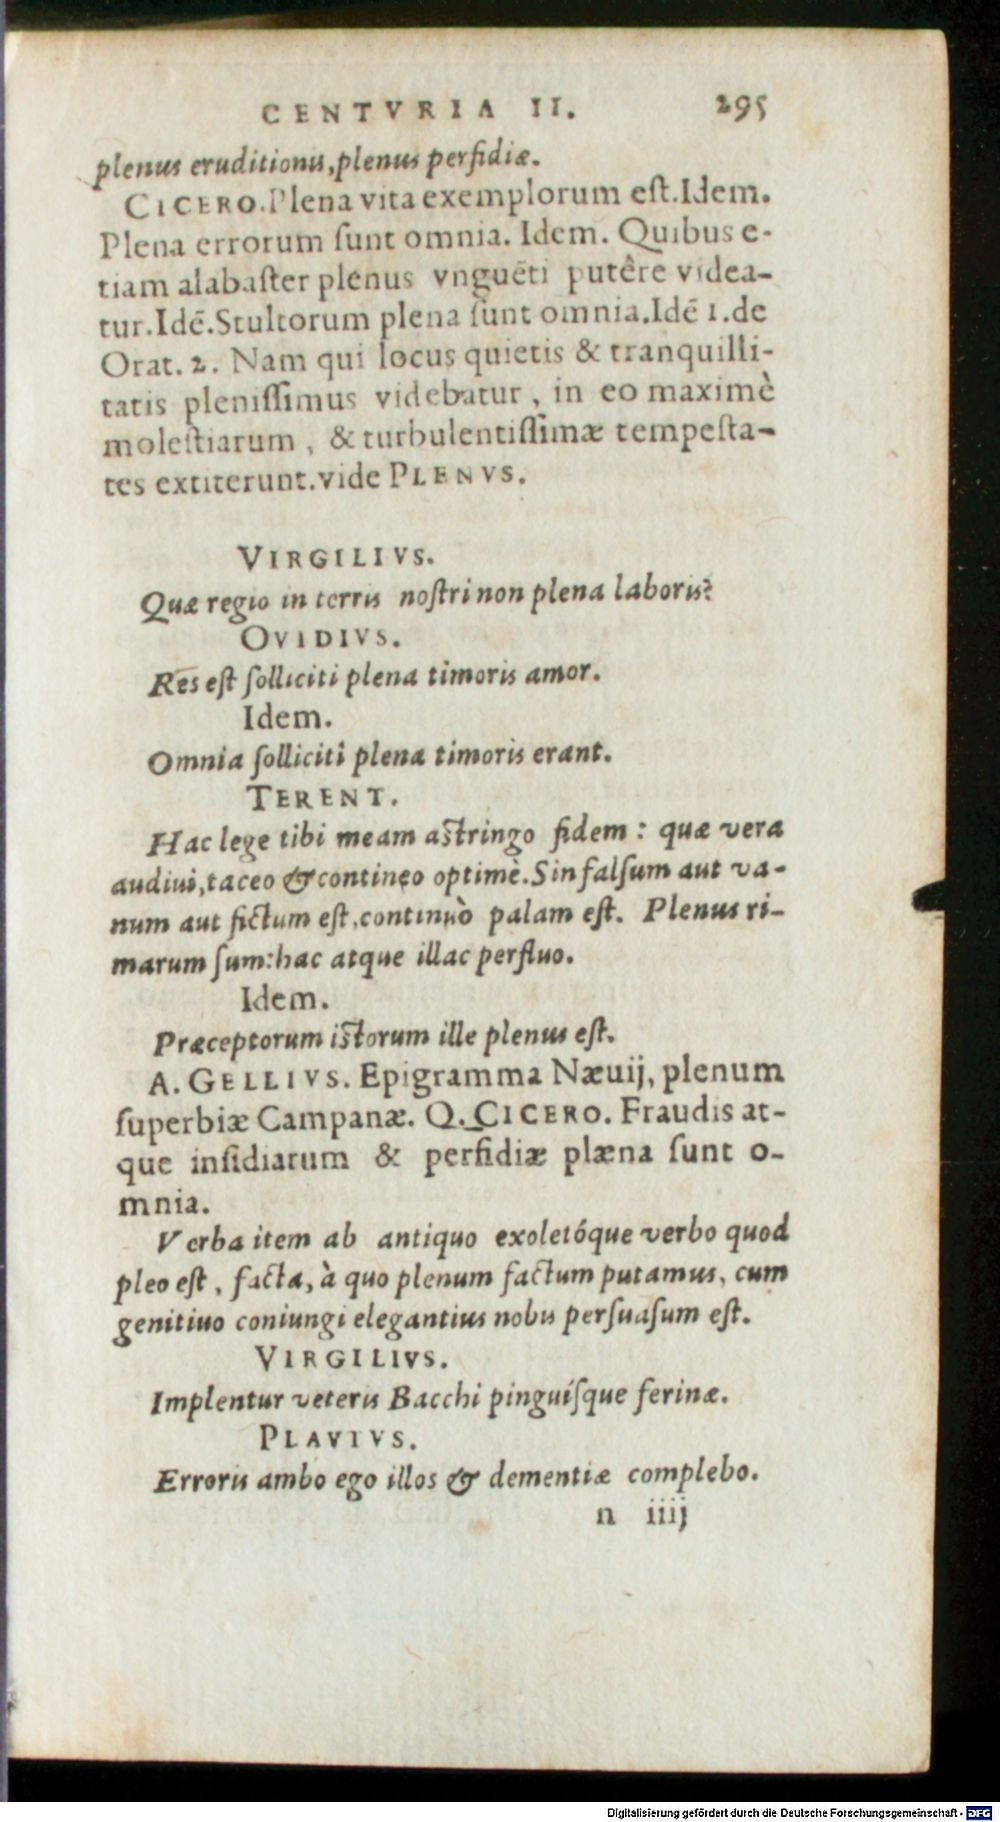 CENTVRIA II. 295
plenus eruditionis, plenus perfidiæ.
CICERO. Plena vita exemplorum eſt. Idem.
Plena errorum ſunt omnia. Idem. Quibus e-
tiam alabaſter plenus vnguẽti putêre videa-
tur. Idẽ. Stultorum plena ſunt omnia. Idẽ 1. de
Orat. 2. Nam qui locus quietis & tranquilli-
tatis pleniſſimus videbatur, in eo maximè
moleſtiarum, & turbulentiſſimæ tempeſta-
tes extiterunt. vide PLENVS.
VIRGILIVS.
Quæ regio in terris noſtri non plena laboris?
OVIDIVS.
Res eſt ſolliciti plena timoris amor.
Idem.
Omnia ſolliciti plena timoris erant.
TERENT.
Hac lege tibi meam aſtringo fidem: quæ vera
audiui, taceo & contineo optimè. Sin falſum aut va-
num aut fictum eſt, continuò palam eſt. Plenus ri-
marum ſum: hac atque illac perfluo.
Idem.
Præceptorum iſtorum ille plenus eſt.
A. GELLIVS. Epigramma Næuij, plenum
ſuperbiæ Campanæ. Q. CICERO. Fraudis at-
que inſidiarum & perfidiæ plæna ſunt o-
mnia.
Verba item ab antiquo exoletóque verbo quod
pleo eſt, facta, à quo plenum factum putamus, cum
genitiuo coniungi elegantius nobis perſuaſum eſt.
VIRGILIVS.
Implentur veteris Bacchi pinguíſque ferinæ.
PLAVTVS.
Erroris ambo ego illos & dementiæ complebo.
n iiij
Digitalisierung gefördert durch die Deutsche Forschungsgemeinschaft - DFG